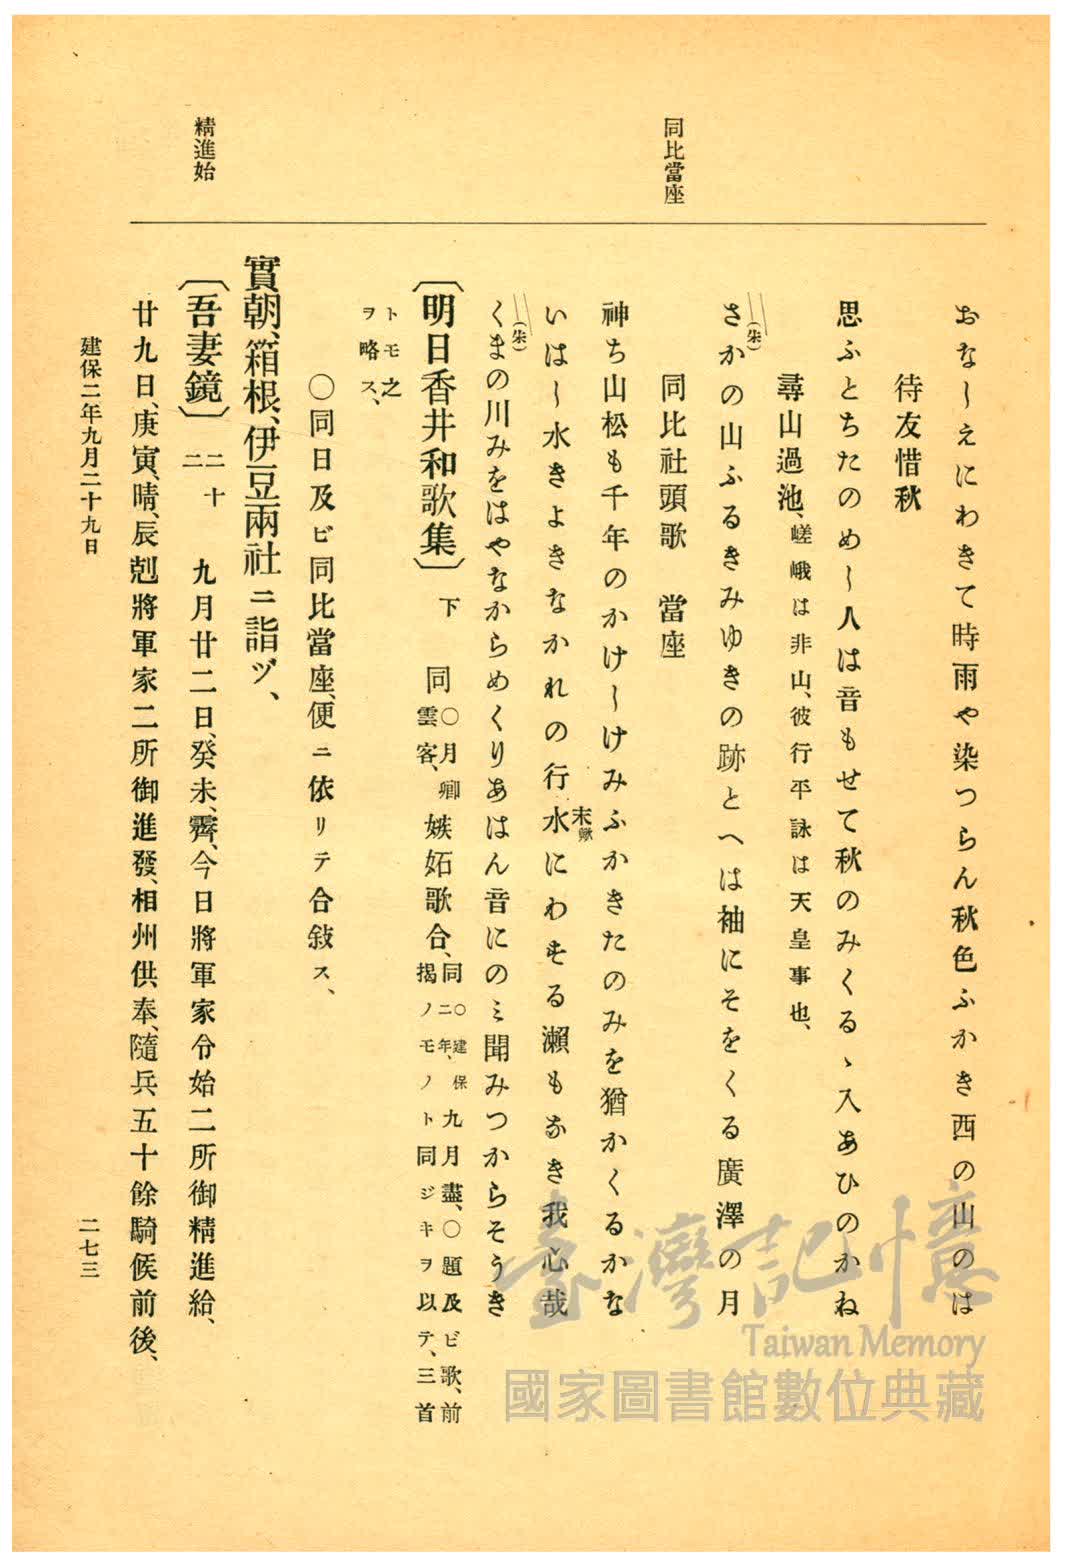 同比當座
精進始
おな〳〵えにわきて時雨や染つらん秋色ふかき西の山のは
待友惜秋
思ふとちたのめし人は音もせて秋のみくるゝ入あひのかね
尋山過池、嵯峨は非山、彼行平詠は天皇事也、
(朱)
さかの山ふるきみゆきの跡とへは袖にそをくる廣澤の月
同比社頭歌　當座
神ち山松も千年のかけしけみふかきたのみを猶かくるかな
末歟
いはし水きよきなかれの行水にわするる瀬もなき我心哉
(朱)
くまの川みをはやなからめくりあはん音にのミ聞みつからそうき
〔明日香井和歌集〕下　同〇月卿雲客、嫉妬歌合、同〇建保二年、九月盡、〇題及ビ歌、前揭ノモノト同ジキヲ以テ、三首
トモ之ヲ略ス、
〇同日及ビ同比當座、便ニ依リテ合敍ス、
實朝、箱根、伊豆兩社ニ詣ヅ、
〔吾妻鏡〕二十二　九月廿二日、癸未、霽、今日將軍家令始二所御精進給、
廿九日、庚寅、晴、辰剋將軍家二所御進發、相州供奉、隨兵五十餘騎候前後、
建保二年九月二十九日
二七三
臺灣記憶
Taiwan Memory
國家圖書館數位典藏